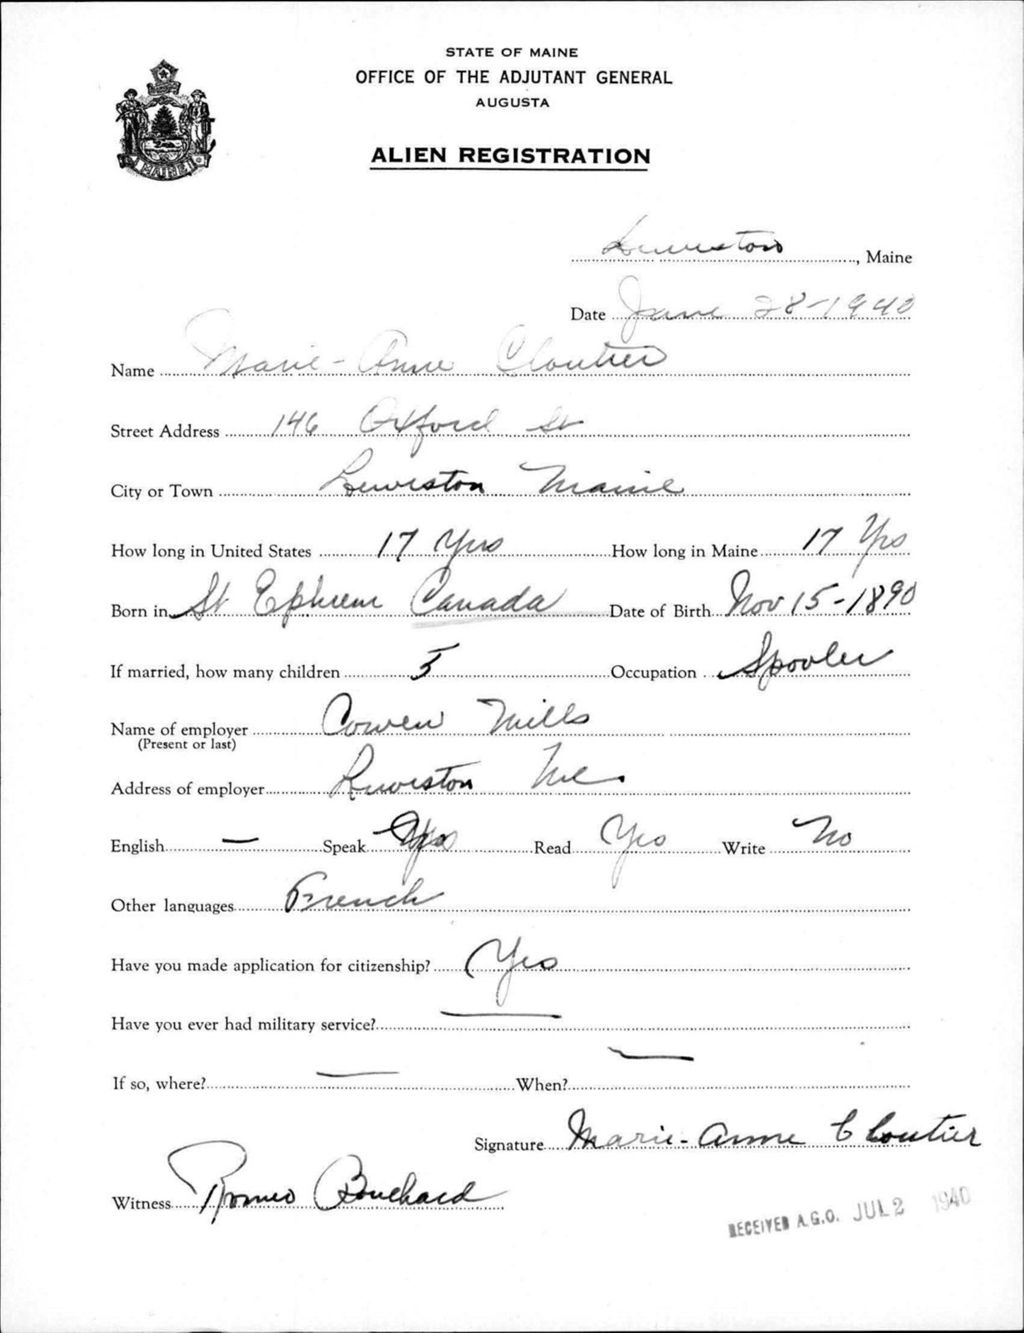 STATE OF MAINE
OFFICE OF THE ADJUTANT GENERAL
AUGUSTA
ALIEN REGISTRATION
MAINE
Lewiston, Maine
Date June 28-1940
Name Marie-Anne Cloutier
Street Address 146 Oxford St
City or Town Lewiston Maine
How long in United States 17 Yrs How long in Maine 17 Yrs
Born in St Ephrem Canada Date of Birth Nov 15-1890
If married, how many children 5 Occupation Spooler
Name of employer Cowen Mills
(Present or last)
Address of employer Lewiston Me.
English — Speak Yes Read Yes Write No
Other languages French
Have you made application for citizenship? Yes
Have you ever had military service? —
If so, where? — When? —
Signature Marie-Anne Cloutier
Witness Romeo Bouchard
RECEIVED A.G.O. JUL 2 1940